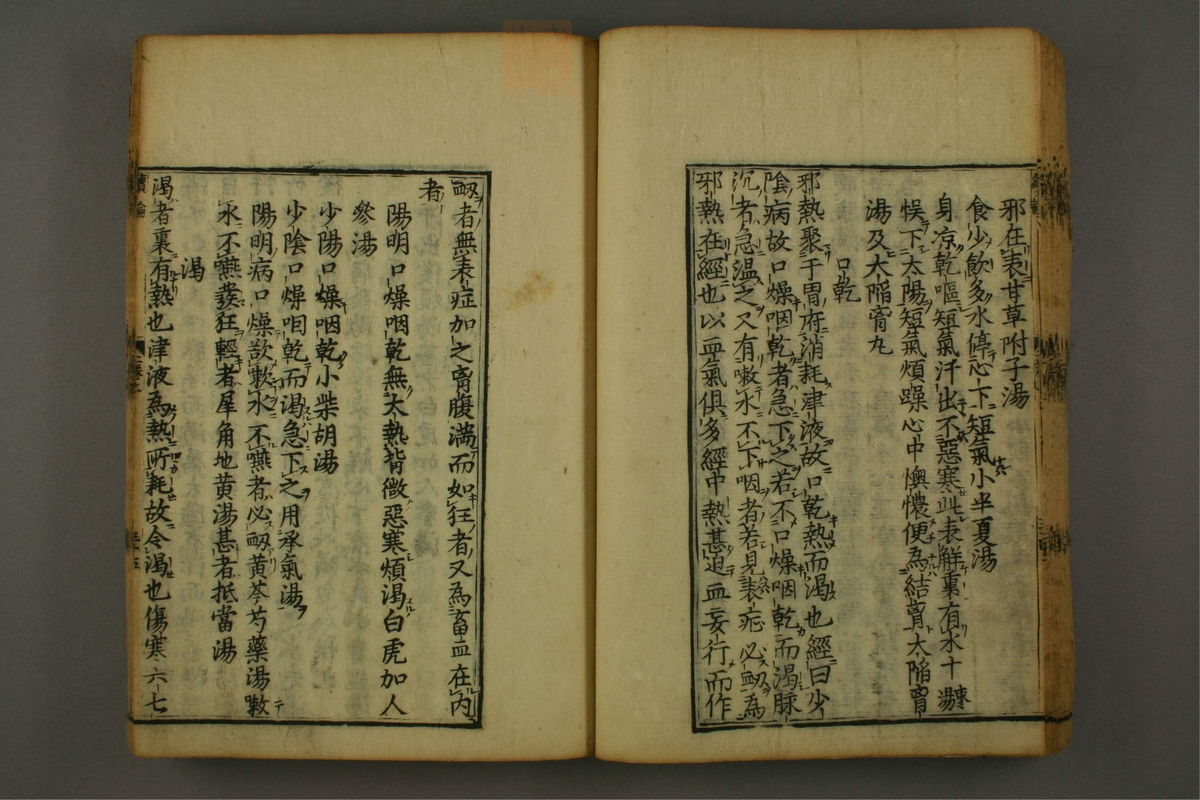 邪在表甘草附子湯
食少飲多水停心下短氣小半夏湯
身凉乾嘔短氣汗出不惡寒此表解裏有水十棗湯
悞下太陽短氣煩躁心中懊憹便為結胷大陥胷
湯及大陥胷丸
口乾
邪熱聚于胃府消耗津液故口乾熱而渇也經曰少
陰病故口燥咽乾者急下之若不口燥咽乾而渇脉
沉者急温之又有嗽水不下咽者若見表症必衂為
邪熱在經也以血氣俱多經中熱甚迫血妄行而作
衂者無表症加之胷腹満而如狂者又為畜血在内
者
陽明口燥咽乾無大熱背微惡寒煩渇白虎加人
參湯
少陽口燥咽乾小柴胡湯
少陰口燥咽乾而渇急下之用承氣湯
陽明病口燥欬嗽水不嚥者必衂黄芩芍藥湯嗽
水不嚥發狂輕者犀角地黄湯甚者抵當湯
渇
渇者裏有熱也津液為熱所耗故令渇也傷寒六七